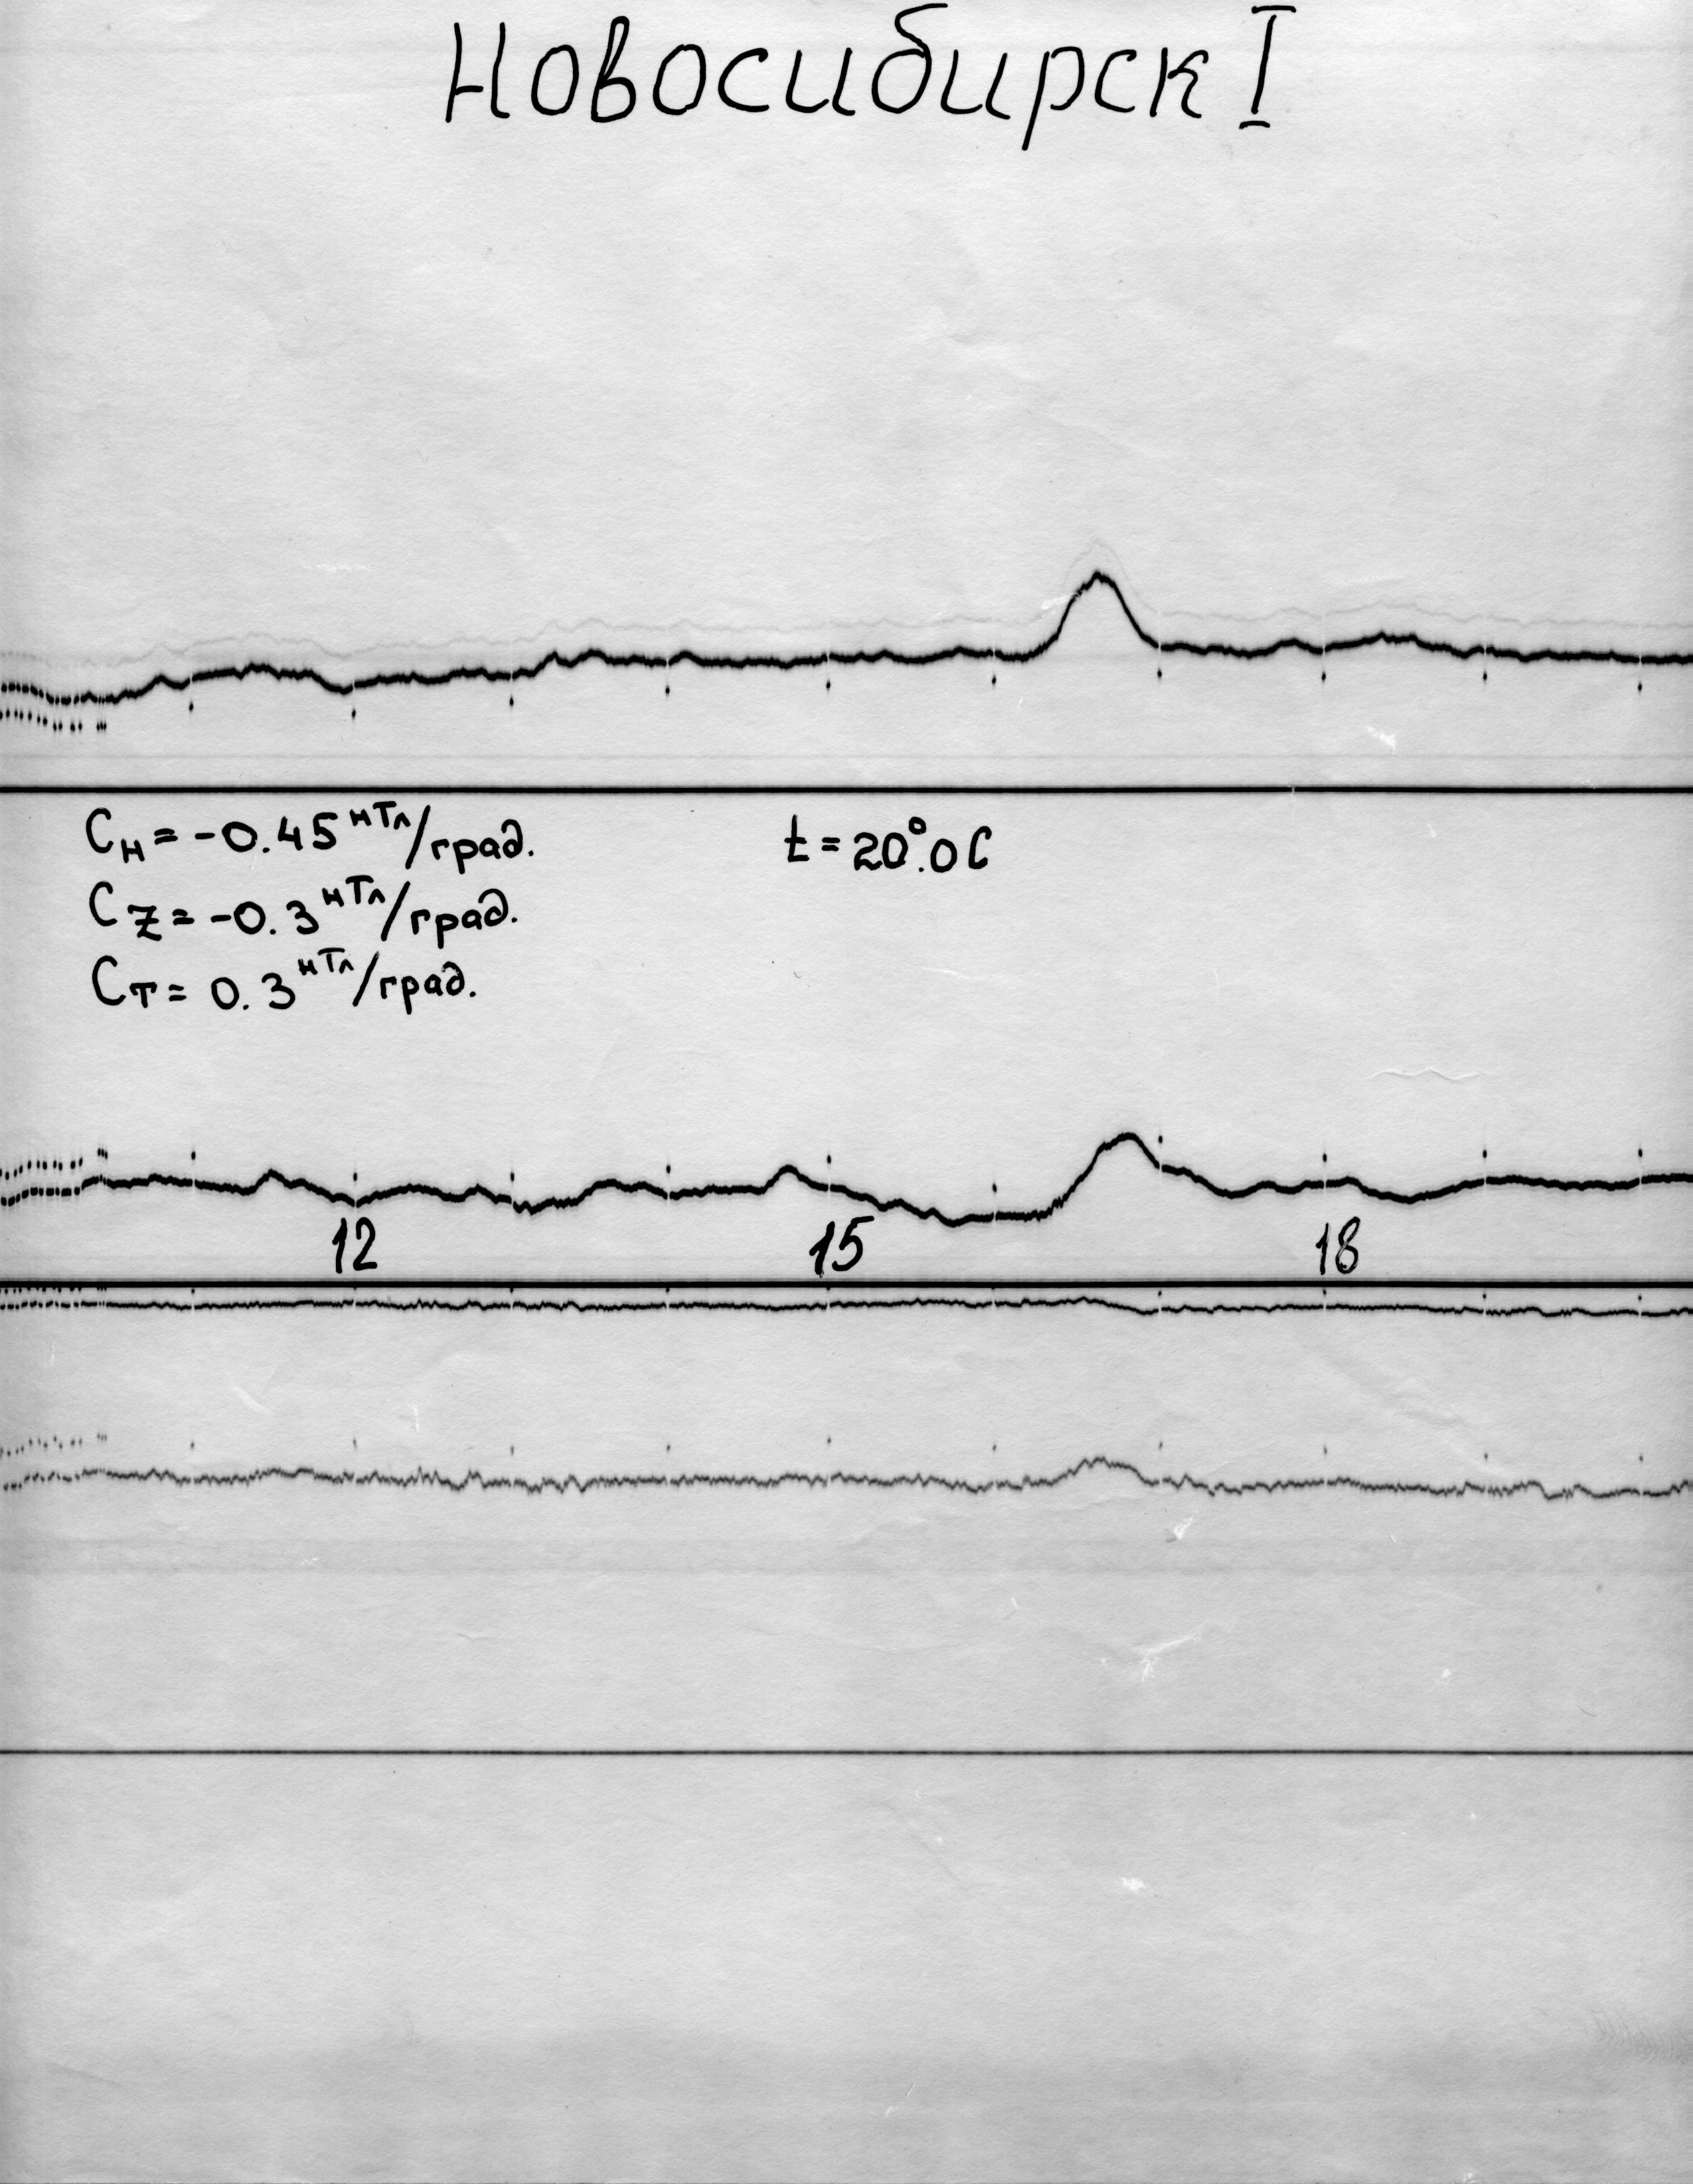 Новосибирск I
Cн = -0.45 нТл/град.
t = 20°.0 C
Cz = -0.3 нТл/град.
Cт = 0.3 нТл/град.
12 15 18